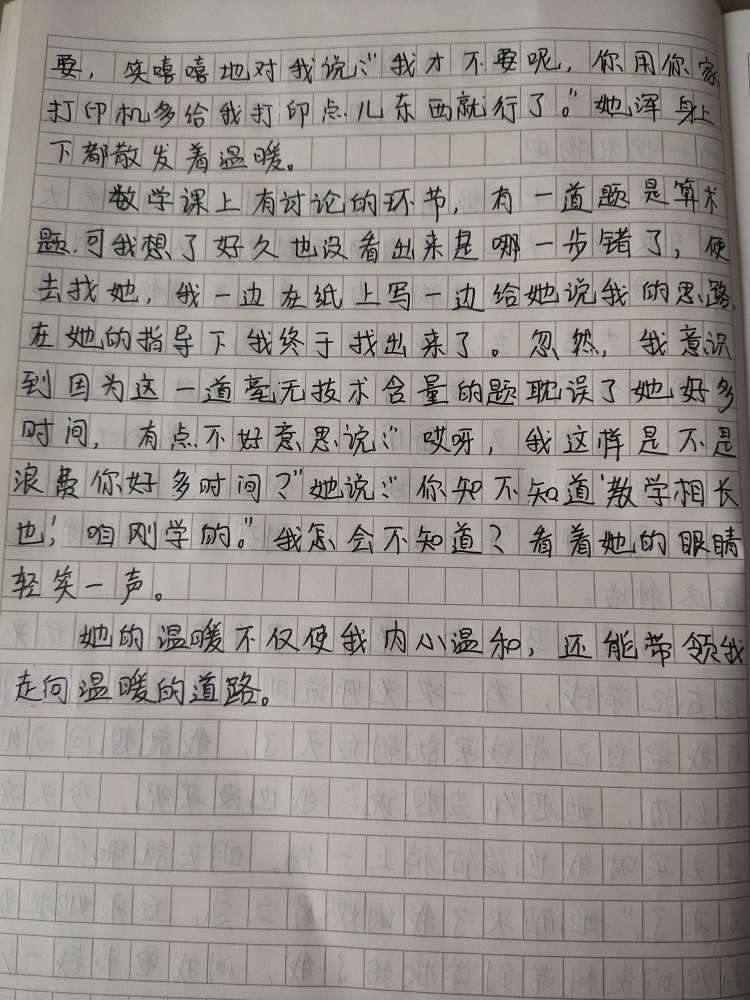 要，笑嘻嘻地对我说：“我才不要呢，你用你家
打印机多给我打印点儿东西就行了。”她浑身上
下都散发着温暖。
数学课上有讨论的环节，有一道题是算术
题，可我想了好久也没看出来是哪一步错了，便
去找她，我一边在纸上写一边给她说我的思路，
在她的指导下我终于找出来了。忽然，我意识
到因为这一道毫无技术含量的题耽误了她好多
时间，有点不好意思说：“哎呀，我这样是不是
浪费你好多时间？”她说：“你知不知道‘教学相长
也’，咱刚学的。”我怎会不知道？看着她的眼睛
轻笑一声。
她的温暖不仅使我内心温和，还能带领我
走向温暖的道路。